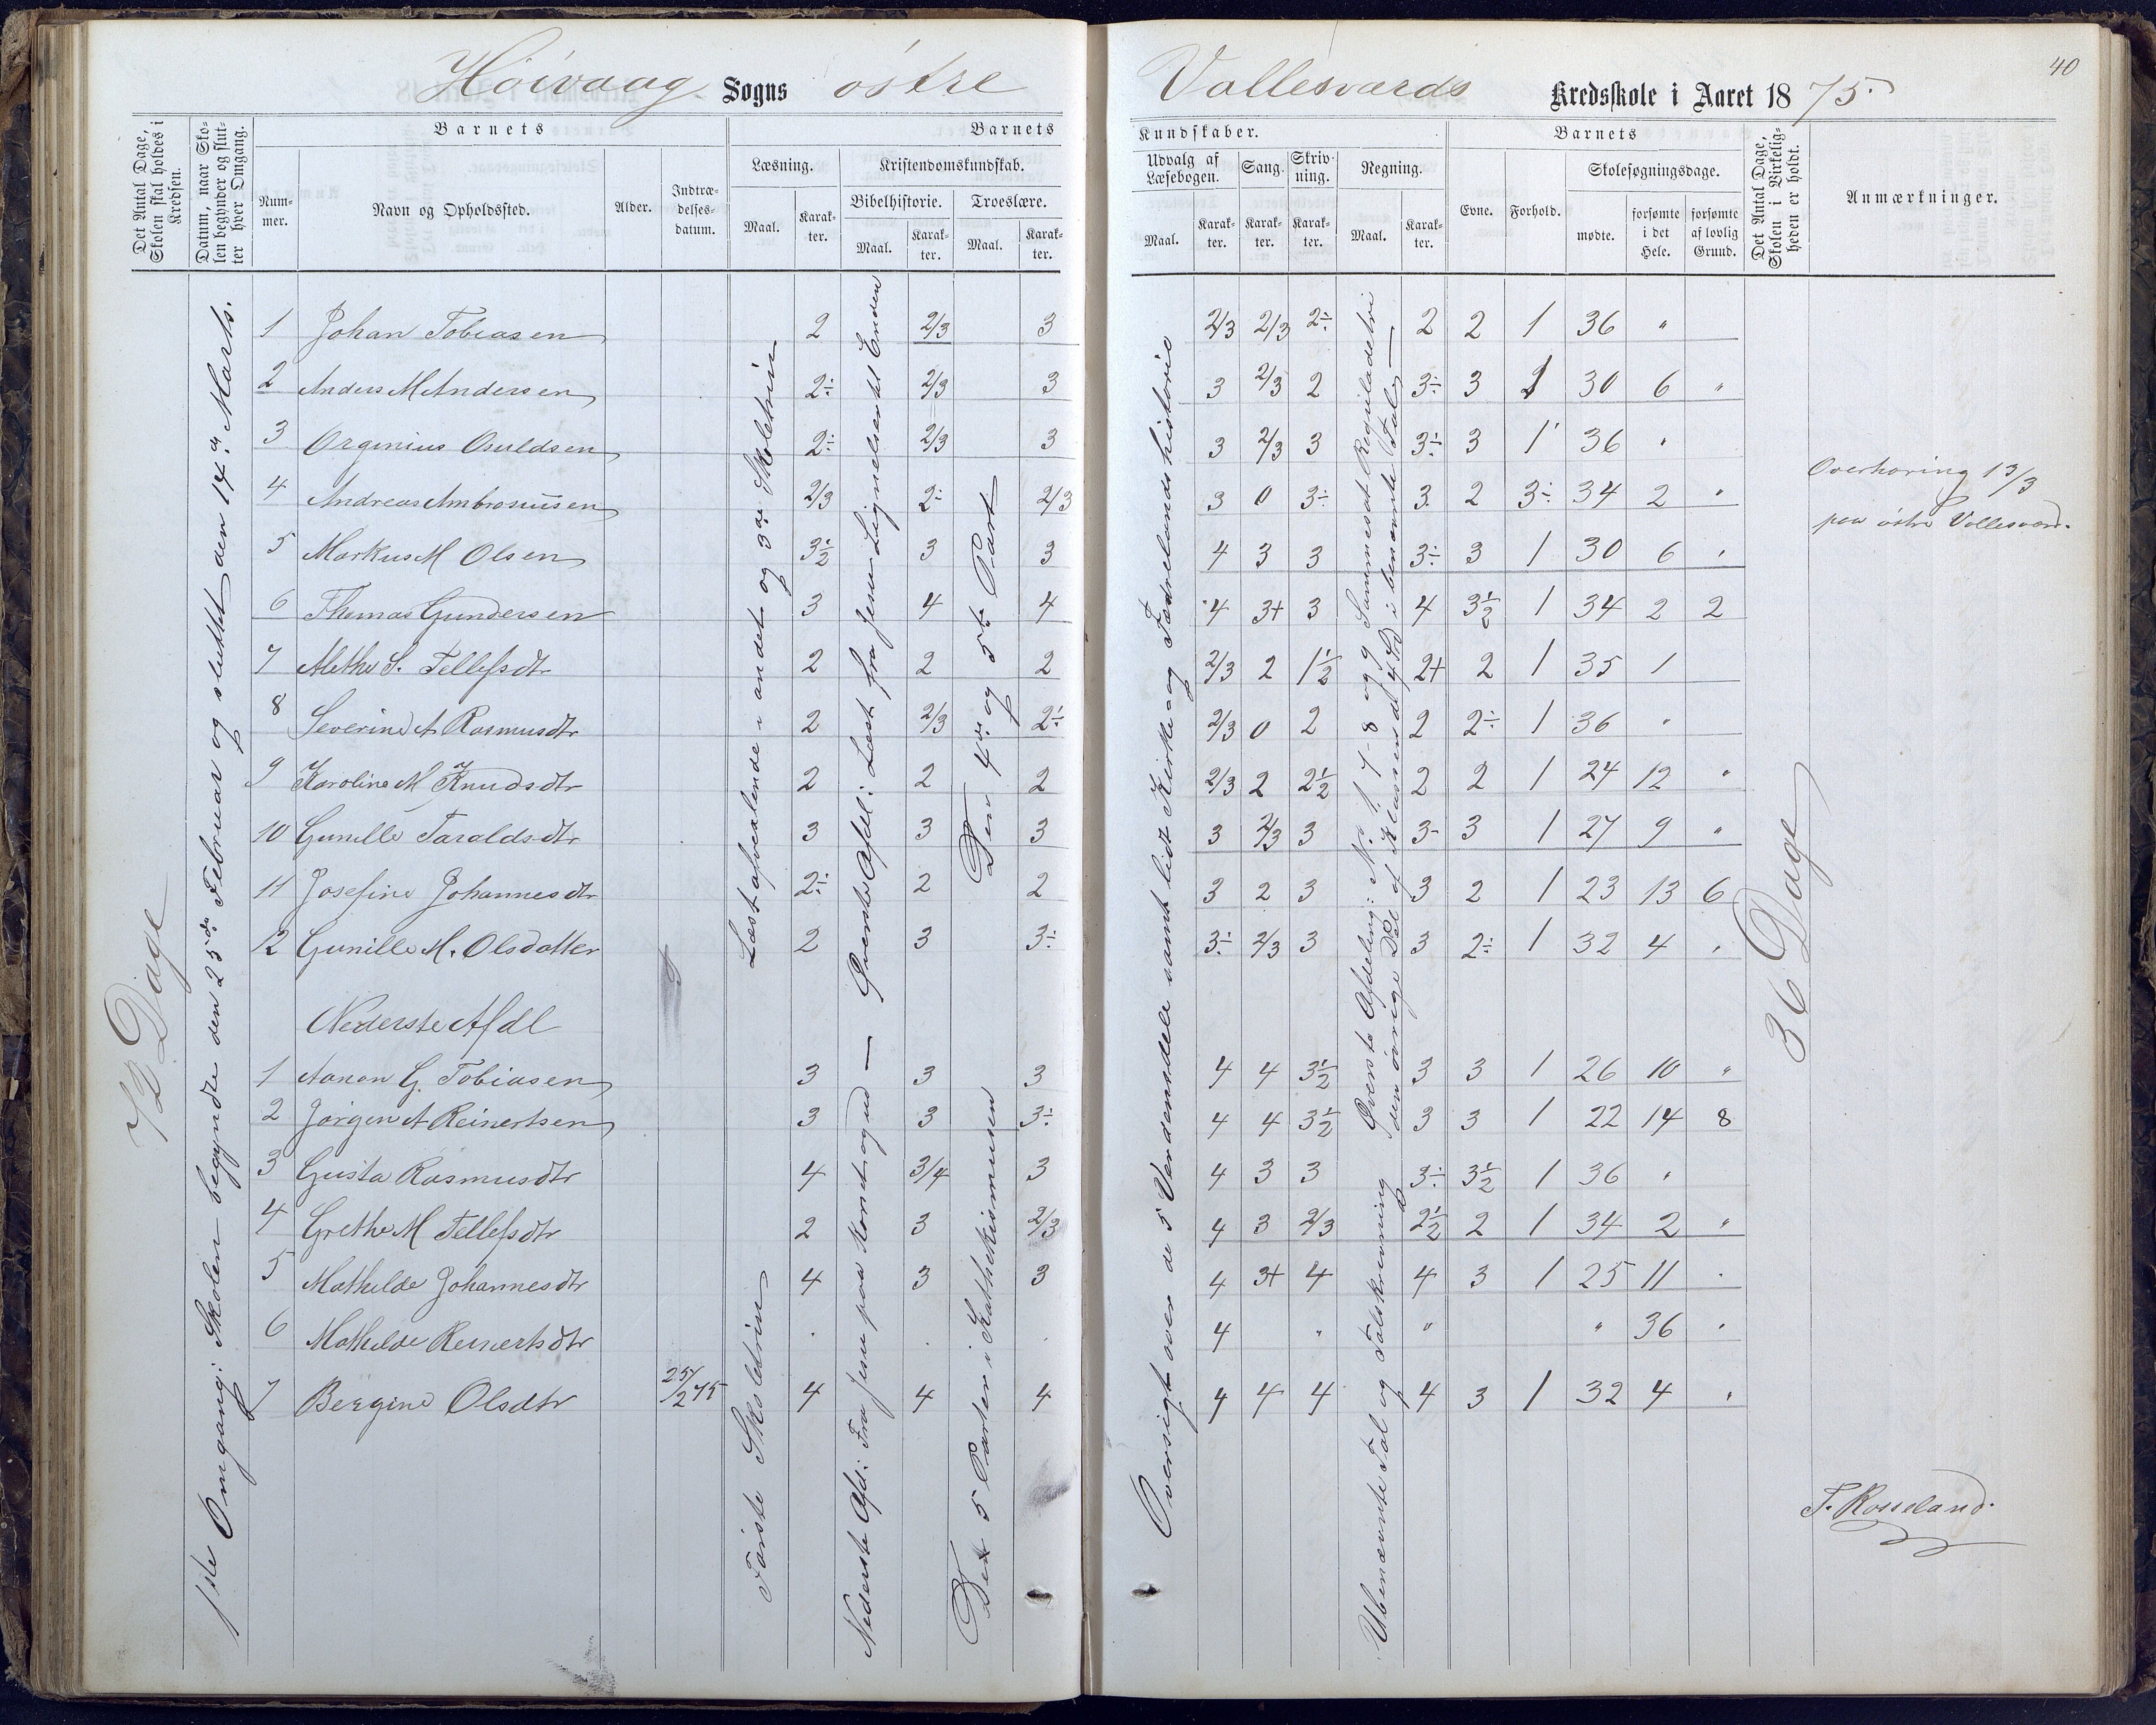 40
Höivaag Sogns östre Vallesværds Kredsskole i Aaret 1875.
Det Antal Dage, Skolen skal holdes i Kredsen.
Datum, naar Skolen begynder og slutter hver Omgang.
Barnets
Nummer.
Navn og Opholdssted.
Alder.
Indtrædelsesdatum.
Barnets
Læsning.
Maal.
Karakter.
Kristendomskundskab.
Bibelhistorie.
Maal.
Karakter.
Troeslære.
Maal.
Karakter.
Kundskaber.
Udvalg af Læsebogen.
Maal.
Karakter.
Sang.
Karakter.
Skrivning.
Karakter.
Regning.
Maal.
Karakter.
Barnets
Evne.
Forhold.
Skolesøgningsdage.
mødte.
forsømte i det Hele.
forsømte af lovlig Grund.
Det Antal Dage, Skolen i Virkeligheden er holdt.
Anmærkninger.
72 Dage
1ste Omgang: Skolen begyndte den 25de Februar og sluttet den 14de Marts.
1 Johan Tobiasen 2 2/3 3 2/3 2/3 2÷ 2 2 1 36 "
2 Anders M Andersen 2÷ 2/3 3 3 2/3 2 3÷ 3 1 30 6 "
3 Orginius Osuldsen 2÷ 2/3 3 3 2/3 3 3÷ 3 1 36 "
4 Andreas Ambrosiussen 2/3 2÷ 2/3 3 0 3÷ 3 2 3÷ 34 2 "
5 Markus M Olsen 3½ 3 3 4 3 3 3÷ 3 1 30 6 "
6 Thomas Gundersen 3 4 4 4 3+ 3 4 3½ 1 34 2 2
7 Methe S. Tellefsdtr 2 2 2 2/3 2 1½ 2+ 2 1 35 1
8 Severine A Rasmusdtr 2 2/3 2÷ 2/3 0 2 2 2÷ 1 36 "
9 Karoline M Knudsdtr 2 2 2 2/3 2 2½ 2 2 1 24 12 "
10 Gunille Taraldsdtr 3 3 3 3 2/3 3 3- 3 1 27 9 "
11 Josefine Johannesdtr 2÷ 2 2 3 2 3 3 2 1 23 13 6
12 Gunille M. Olsdatter 2 3 3÷ 3÷ 2/3 3 3 2÷ 1 32 4 "
Nederste Afdl
1 Aanon G. Tobiasen 3 3 3 4 4 3½ 3 3 1 26 10 "
2 Jørgen A Reinertsen 3 3 3÷ 4 4 3½ 3 3 1 22 14 8
3 Gusta Rasmusdtr 4 3/4 3 4 3 3 3÷ 3½ 1 36 "
4 Grethe M Tellefsdtr 2 3 2/3 4 3 2/3 2½ 2 1 34 2 "
5 Mathilde Johannesdtr 4 3 3 4 3+ 4 4 3 1 25 11 "
6 Mathilde Reinertsdtr " " " 4 " " " 36 "
7 Bergine Olsdtr 25/2 75 4 4 4 4 4 4 4 3 1 32 4 "
Læst afvexlende i andet og 3die Skoletrin
Første Skoletrin
Øverste Afdl: Læst fra Jesu Lignelser til Enden
Nederste Afd: Fra Jesu paa Korset og ud —
Den 4de og 5te Part
De 5 Parter i Kathekismusen
Oversigt over de 5 Verdensdele samt lidt Kirke- og Fædrelandshistorie
Øverste Afdeling: No 1. 7- 8 og 9 Sammensat Reguladetri
den øvrige Del af Klassen de 4 Sp i benævnte Tal —
Ubenævnte Tal og Talskrivning
36 Dage
Overhøring 13/3
paa östre Vallesværd.
T. Rosseland.